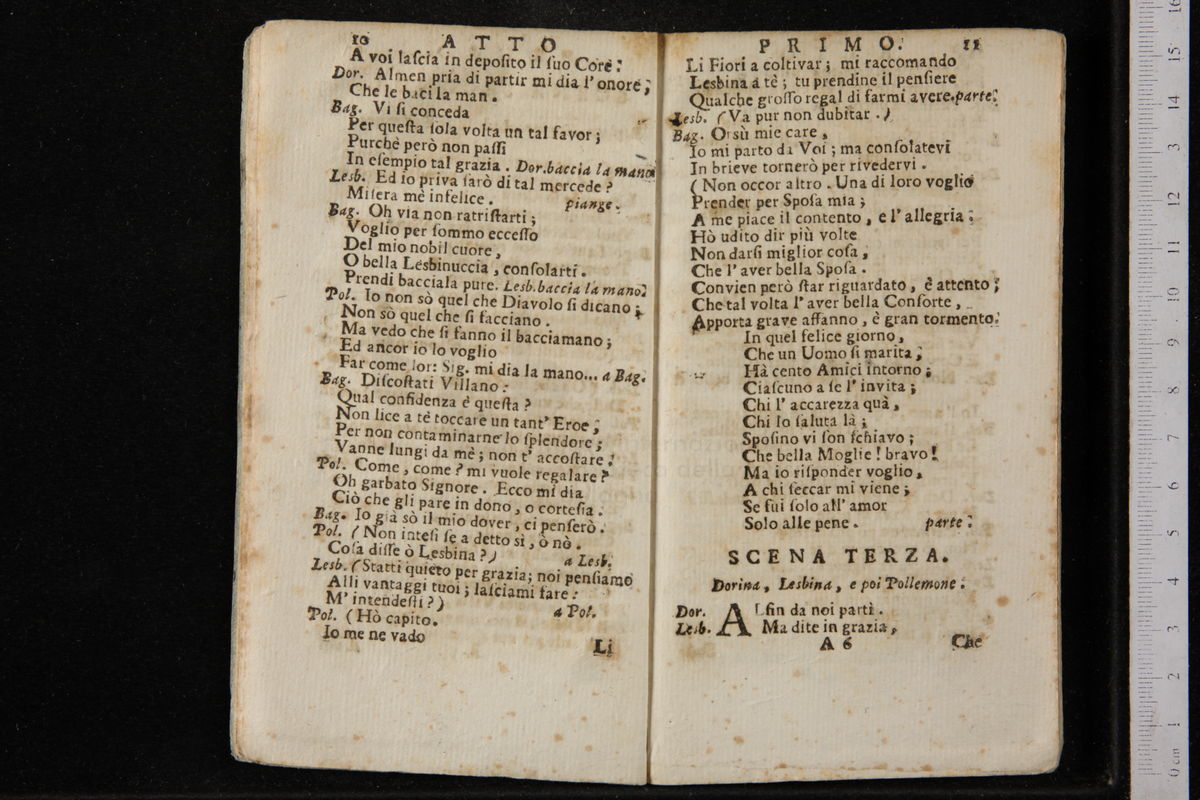 10 ATTO
A voi laſcia in depoſito il ſuo Core:
Dor. Almen pria di partir mi dia l'onore,
Che le baci la man.
Bag. Vi ſi conceda
Per queſta ſola volta un tal favor;
Purchè però non paſſi
In eſempio tal grazia. Dor. baccia la mano
Lesb. Ed io priva ſarò di tal mercede?
Miſera mè infelice. piange.
Bag. Oh via non ratriſtarti;
Voglio per ſommo ecceſſo
Del mio nobil cuore,
O bella Lesbinuccia, conſolarti.
Prendi bacciala pure. Lesb. baccia la mano.
Pol. Io non sò quel che Diavolo ſi dicano;
Non sò quel che ſi facciano.
Ma vedo che ſi fanno il bacciamano;
Ed ancor io lo voglio
Far come lor: Sig. mi dia la mano... a Bag.
Bag. Diſcoſtati Villano:
Qual confidenza è queſta?
Non lice a tè toccare un tant' Eroe,
Per non contaminarne lo ſplendore;
Vanne lungi da mè; non t' accoſtare.
Pol. Come, come? mi vuole regalare?
Oh garbato Signore. Ecco mi dia
Ciò che gli pare in dono, o corteſia.
Bag. Io già sò il mio dover, ci penſerò.
Pol. (Non inteſi ſe a detto sì, ò nò.
Coſa diſſe ò Lesbina?) a Lesb.
Lesb. (Statti quieto per grazia; noi penſiamo
Alli vantaggi tuoi; laſciami fare:
M' intendeſti?) a Pol.
Pol. (Hò capito.
Io me ne vado
Li
PRIMO. 11
Li Fiori a coltivar; mi raccomando
Lesbina a tè; tu prendine il penſiere
Qualche groſſo regal di farmi avere. parte.
Lesb. (Va pur non dubitar.)
Bag. Orsù mie care,
Io mi parto da Voi; ma conſolatevi
In brieve tornerò per rivedervi.
(Non occor altro. Una di loro voglio
Prender per Spoſa mia;
A me piace il contento, e l'allegria:
Hò udito dir più volte
Non darſi miglior coſa,
Che l'aver bella Spoſa.
Convien però ſtar riguardato, è attento;
Che tal volta l'aver bella Conſorte,
Apporta grave affanno, è gran tormento.
In quel felice giorno,
Che un Uomo ſi marita,
Hà cento Amici intorno;
Ciaſcuno a ſe l'invita;
Chi l'accarezza quà,
Chi lo ſaluta là;
Spoſino vi ſon ſchiavo;
Che bella Moglie! bravo!
Ma io riſponder voglio,
A chi ſeccar mi viene;
Se fui ſolo all' amor
Solo alle pene. parte.
SCENA TERZA.
Dorina, Lesbina, e poi Pollemone.
Dor. Alfin da noi partì.
Lesb. Ma dite in grazia,
A 6 Che